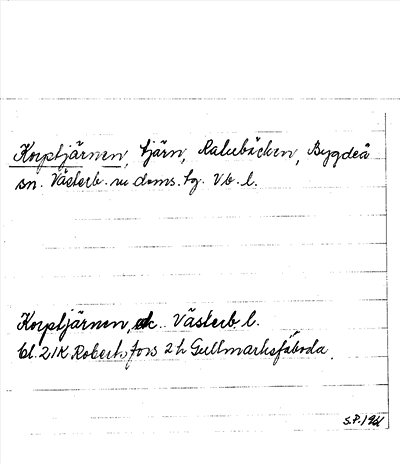 Korptjärnen, tjärn, Ralubäcken, Bygdeå
sn. Västerb. n. doms. tg. Vb. l.
Korptjärnen, ek. Västerb. l.
bl. 21K Robertsfors 2 h Gullmarksfäboda.
S.P. 1961